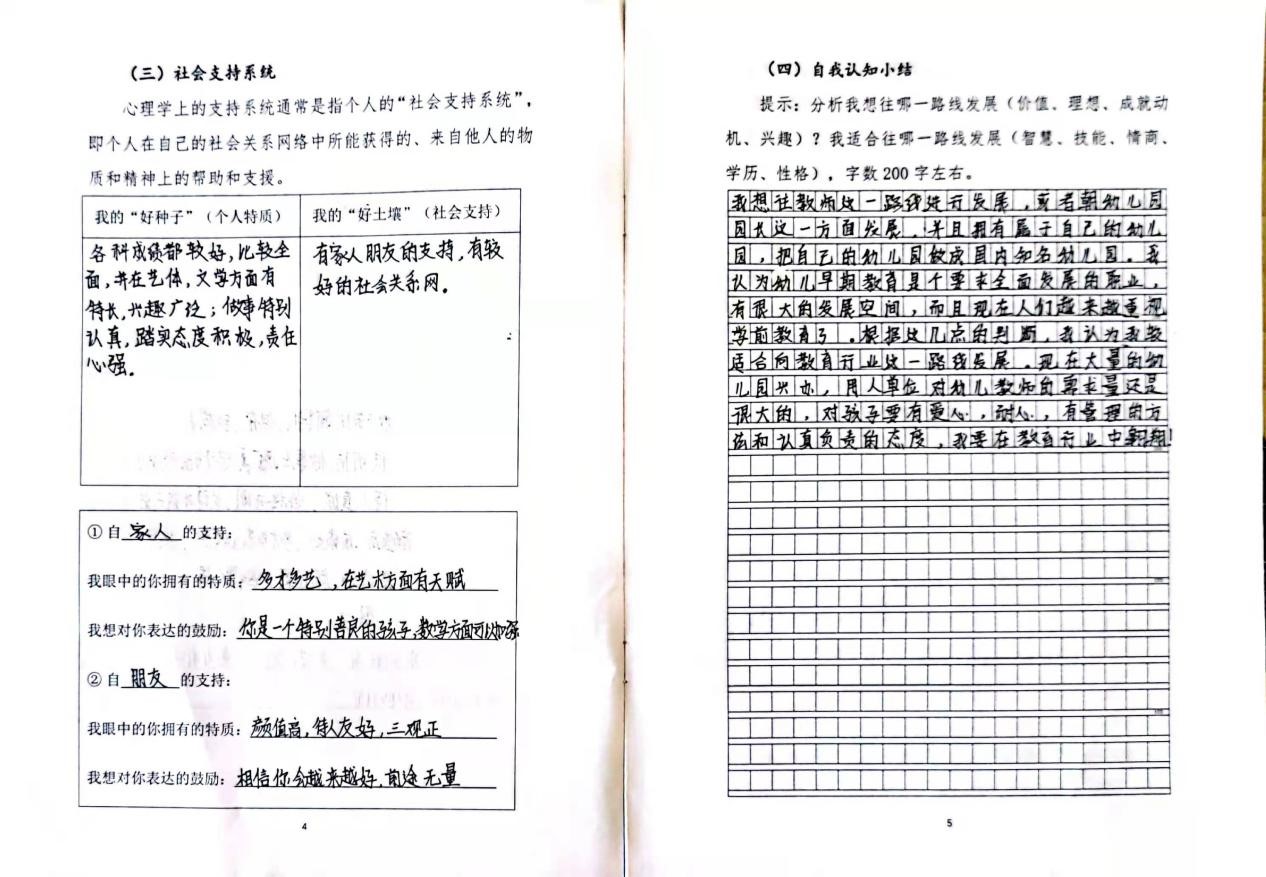 （三）社会支持系统
心理学上的支持系统通常是指个人的“社会支持系统”，
即个人在自己的社会关系网络中所能获得的、来自他人的物
质和精神上的帮助和支援。
我的“好种子”（个人特质）
各科成绩都较好，比较全
面，并在艺体，文学方面有
特长，兴趣广泛；做事特别
认真，踏实态度积极，责任
心强。
我的“好土壤”（社会支持）
有家人朋友的支持，有较
好的社会关系网。
①自 家人 的支持：
我眼中的你拥有的特质：多才多艺，在艺术方面有天赋
我想对你表达的鼓励：你是一个特别善良的孩子，数学方面可以加强
②自 朋友 的支持：
我眼中的你拥有的特质：颜值高，待人友好，三观正
我想对你表达的鼓励：相信你会越来越好，前途无量
4
（四）自我认知小结
提示：分析我想往哪一路线发展（价值、理想、成就动
机、兴趣）？我适合往哪一路线发展（智慧、技能、情商、
学历、性格），字数 200 字左右。
我想往教师这一路线进行发展，或者朝幼儿园
园长这一方面发展，并且拥有属于自己的幼儿
园，把自己的幼儿园做成国内知名幼儿园。我
认为幼儿早期教育是个要求全面发展的职业，
有很大的发展空间，而且现在人们越来越重视
学前教育了。根据这几点的判断，我认为我较
适合向教育行业这一路线发展。现在大量的幼
儿园兴办，用人单位对幼儿教师的需求量还是
很大的，对孩子要有爱心，耐心，有管理的方
法和认真负责的态度，我要在教育行业中翱翔！
5